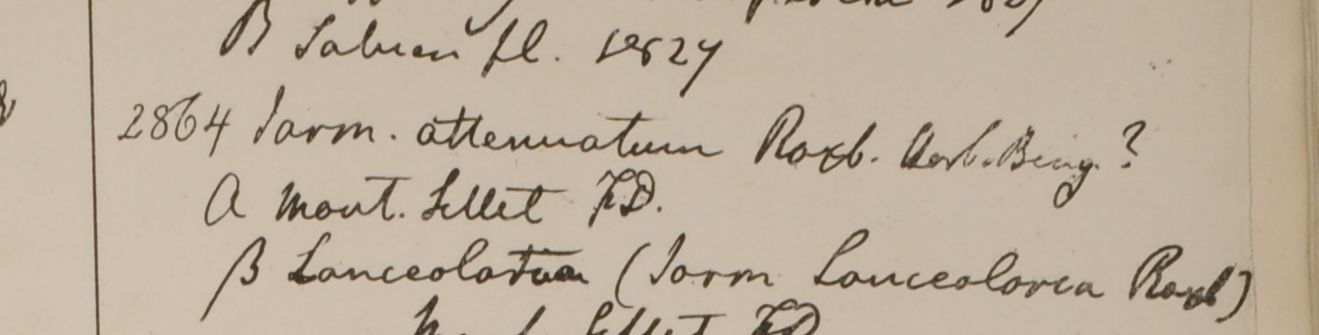 B Saluen fl. 1827
2864 Jasm. attenuatum Roxb. Herb. Beng.?
A mont. Sillet FD.
β Lanceolatum (Jasm Lanceolaria Roxb)
Sillet FD